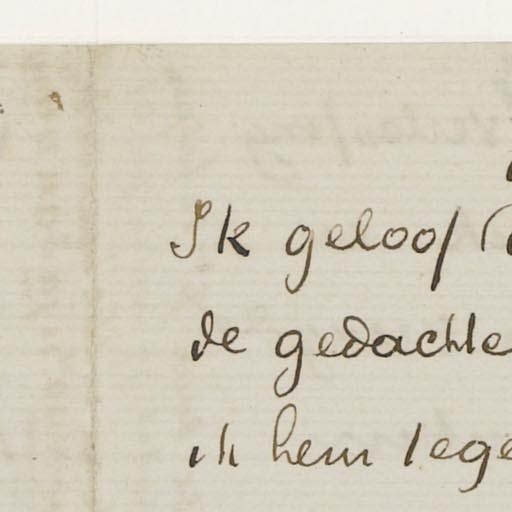 Ik geloof
de gedachte
ik hem tege